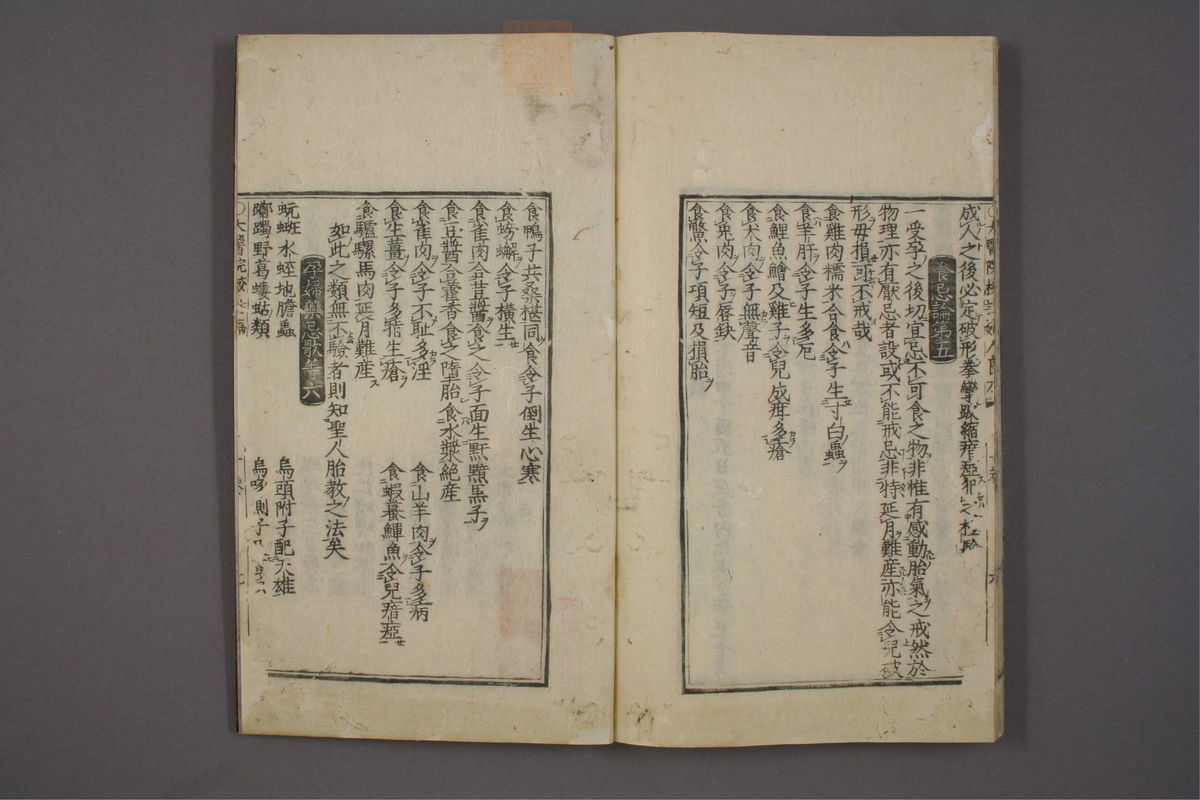 成人之後必定破形拳攣跛縮瘖瘂
食忌論第五
一受孕之後切宜忌不可食之物非惟有感動胎氣之戒然於
物理亦有厭忌者設或不能戒忌非特延月難産亦能令兒破
形母損可不戒哉
食雞肉糯米合食令子生寸白蟲
食羊肝令子生多厄
食鯉魚鱠及雞子令兒成疳多瘡
食犬肉令子無聲音
食兎肉令子唇缺
食鱉令子項短及損胎
食鴨子共桑椹同食令子倒生心寒
食螃蠏令子横生
食雀肉合荳醬食之令子面生䵟黯黒子
食豆醬合藿香食之墮胎 食水漿絶産
食雀肉令子不耻多淫 食山羊肉令子多病
食生薑令子多指生瘡 食蝦蟇鱓魚令兒瘖瘂
食驢騾馬肉延月難産
如此之類無不驗者則知聖人胎教之法矣
孕婦藥忌歌第六
蚖蝱水蛭地膽蟲 烏頭附子配天雄
躑躅野葛螻蛄類 烏喙側子